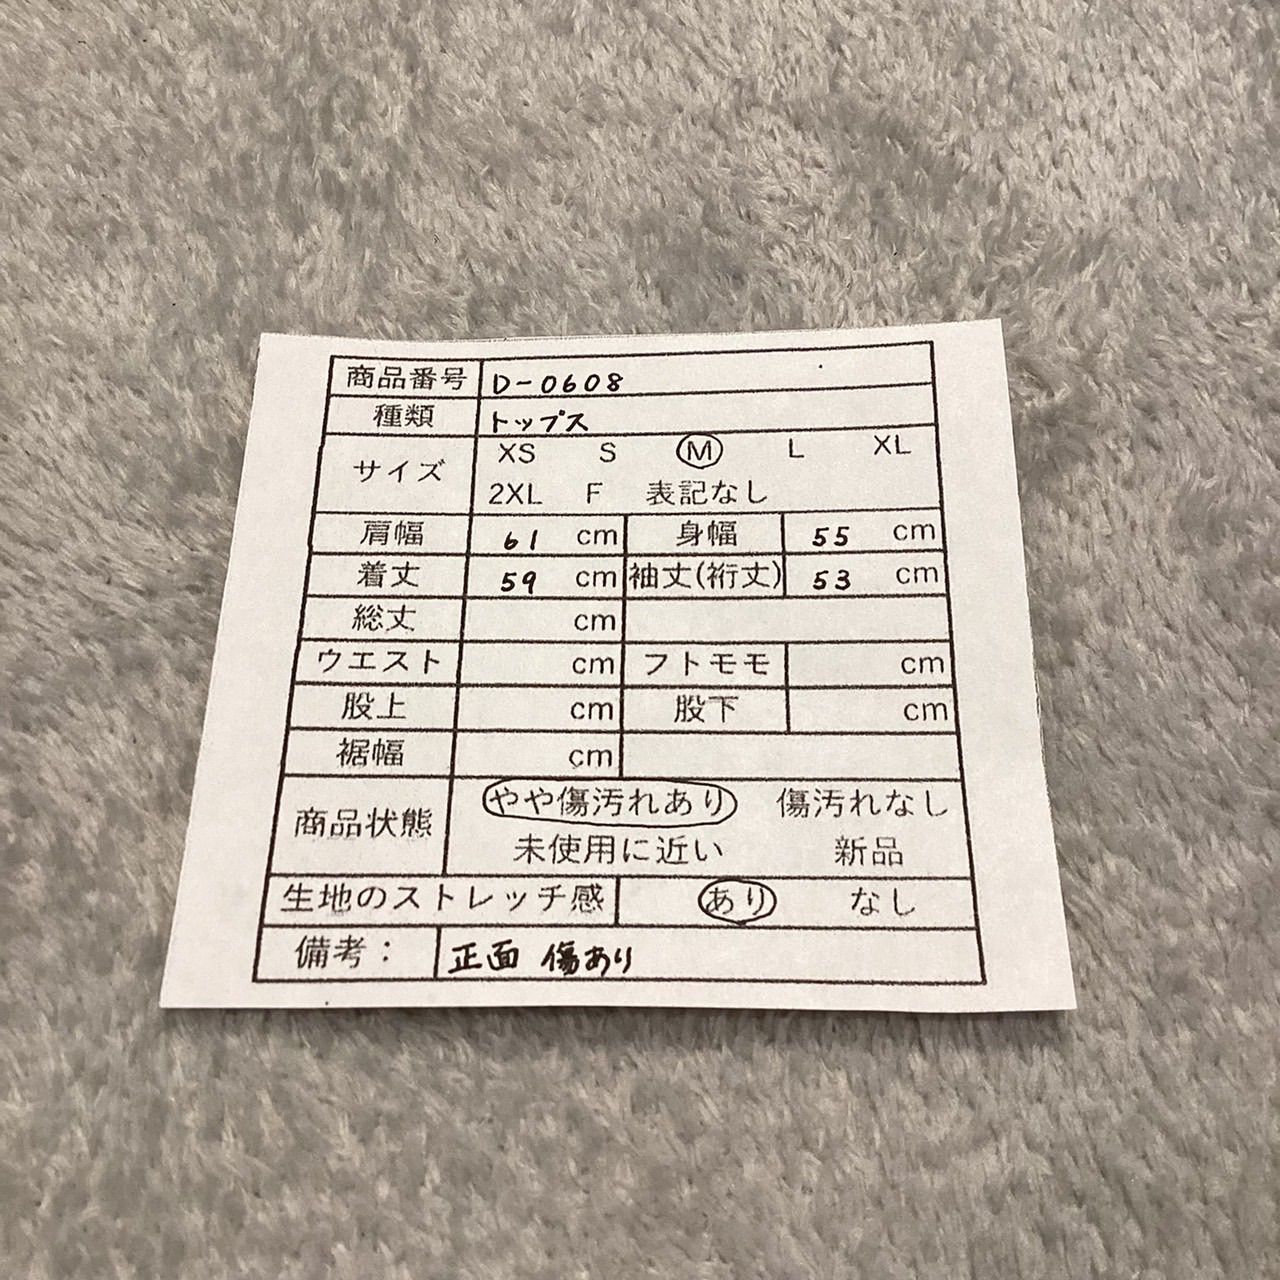 商品番号 D-0608
種類 トップス
サイズ XS S M L XL
2XL F 表記なし
肩幅 61 cm 身幅 55 cm
着丈 59 cm 袖丈(裄丈) 53 cm
総丈 cm
ウエスト cm フトモモ cm
股上 cm 股下 cm
裾幅 cm
商品状態 やや傷汚れあり 傷汚れなし
未使用に近い 新品
生地のストレッチ感 あり なし
備考： 正面 傷あり